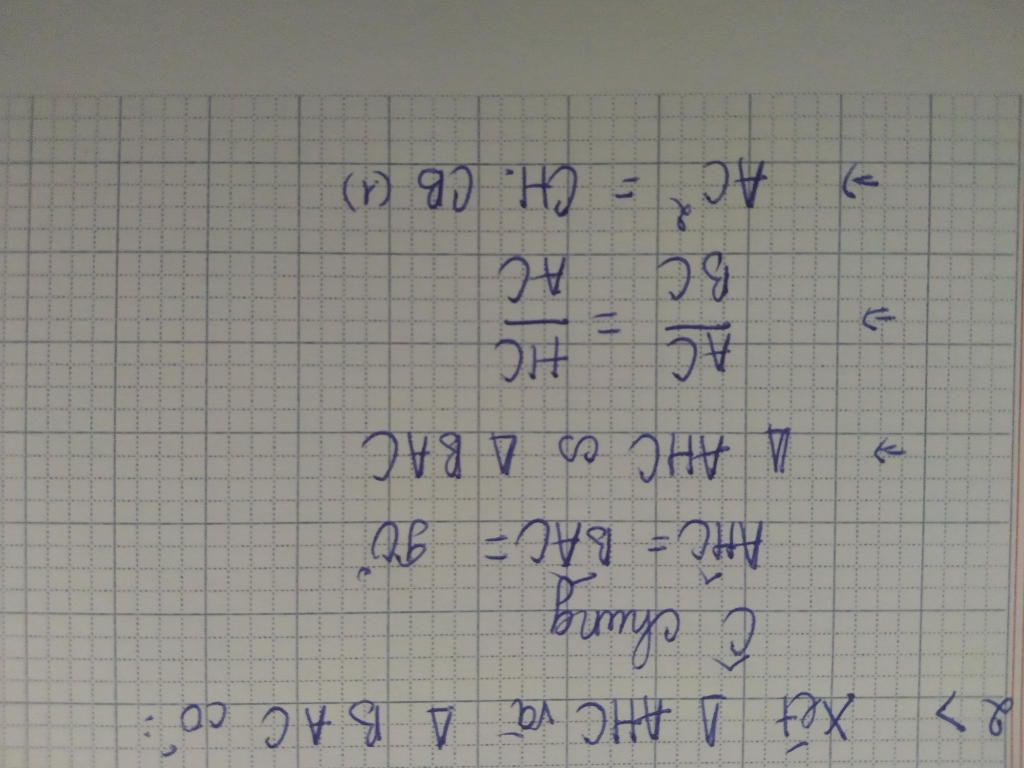 2> Xét Δ AHC và Δ BAC có:
Ĉ chung
AĤC = BÂC = 90°
→ Δ AHC ∽ Δ BAC
→ AC/BC = HC/AC
→ AC² = CH. CB (1)